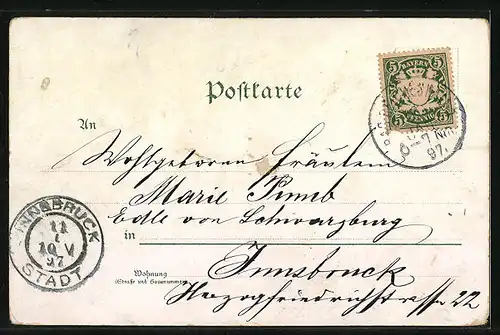 BAYERN
5 5
5 PFENNIG 5
Postkarte
7 NM
97.
An
Wohlgeboren Fräulein
Marie
Edle von Schwarzburg
in
Innsbruck
Wohnung
(Straße und Hausnummer)
Herzogfriedrichstrasse 22
INNSBRUCK
11
10 V
97
STADT